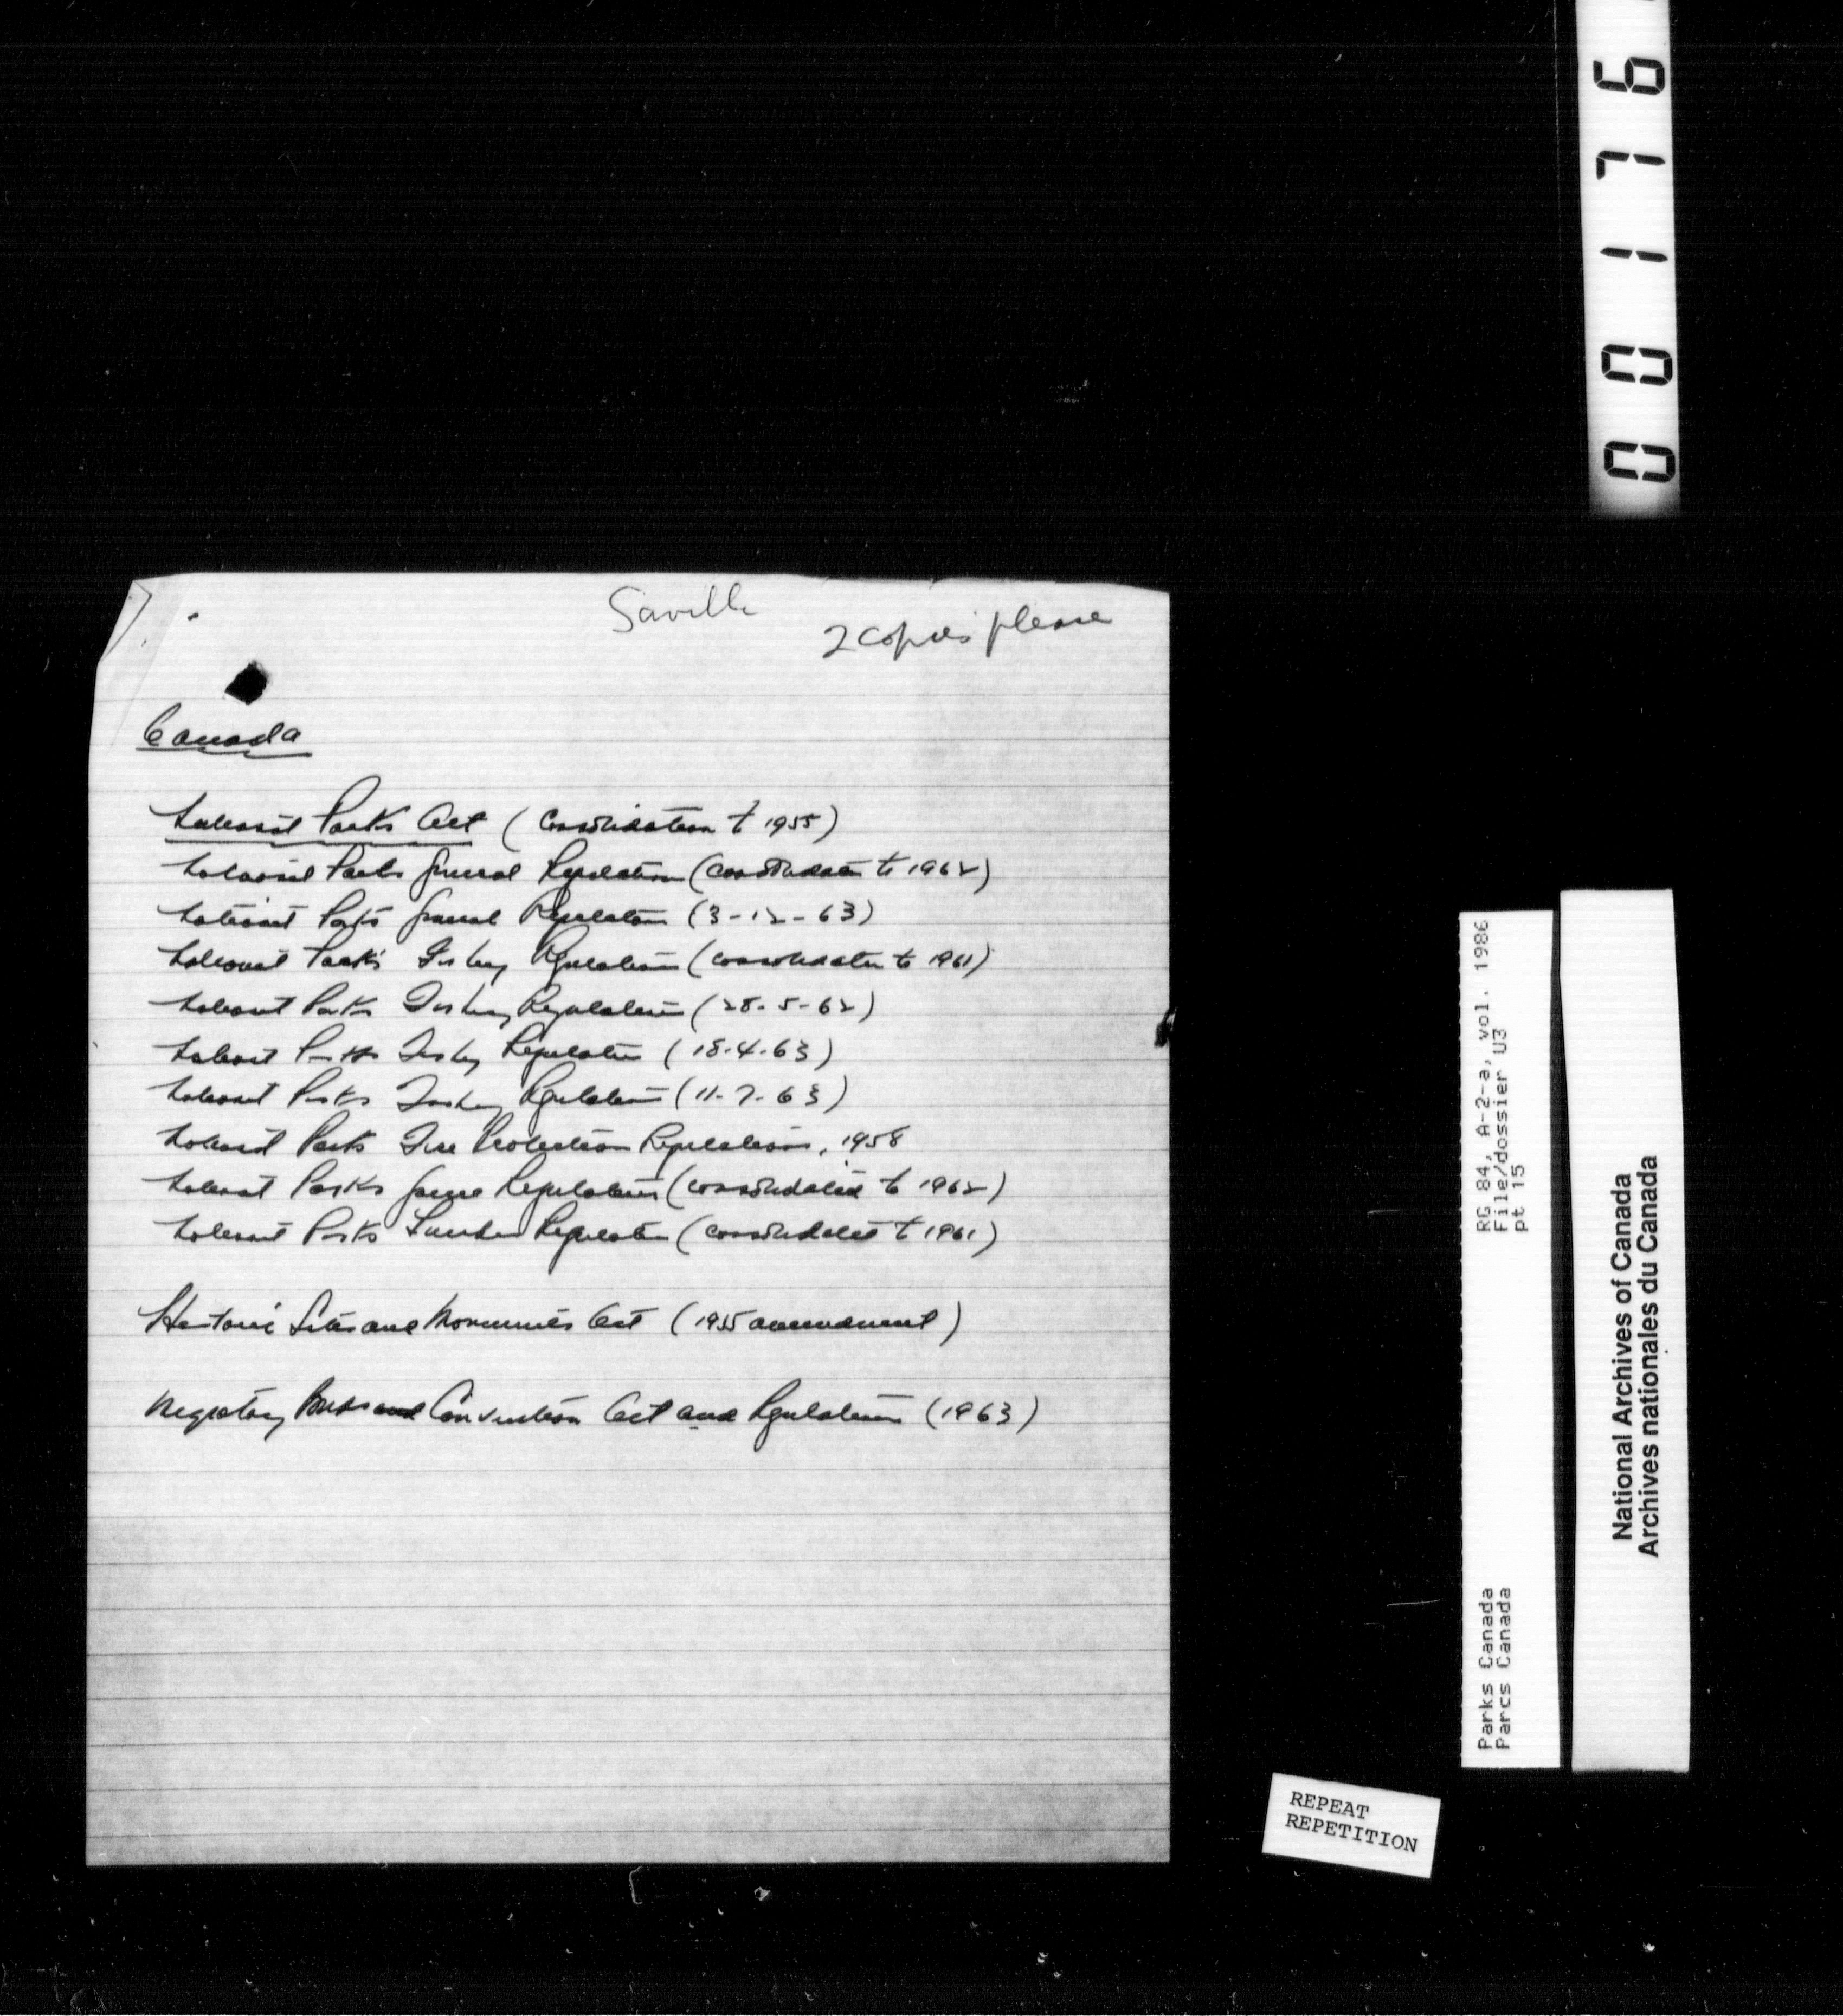 00176
Saville
2 copies please
Canada
National Parks Act (Consolidation to 1955)
National Parks General Regulations (consolidation to 1962)
National Parks General Regulations (3-12-63)
National Parks Fishing Regulations (consolidation to 1961)
National Parks Fishing Regulations (28-5-62)
National Parks Fishing Regulations (18-4-63)
National Parks Fishing Regulations (11-7-63)
National Parks Fire Protection Regulations, 1958
National Parks Game Regulations (consolidated to 1962)
National Parks Regulation (consolidated to 1961)
Historic Sites and Monuments Act (1955 amendment)
Migratory Birds Convention Act and Regulations (1963)
RG 84, A-2-a, vol. 1986
File/dossier U3
pt 15
Parks Canada
Parcs Canada
National Archives of Canada
Archives nationales du Canada
REPEAT
REPETITION